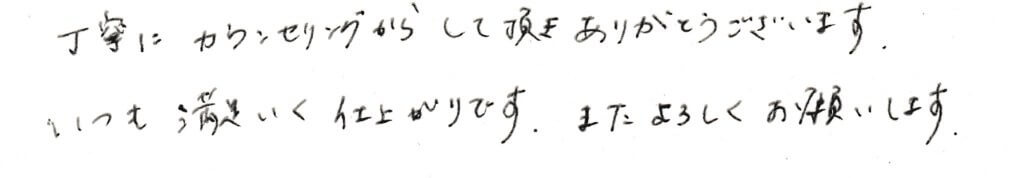 丁寧に カウンセリングから して頂き ありがとうございます.
いつも 満足いく 仕上がりです. またよろしく お願いします.